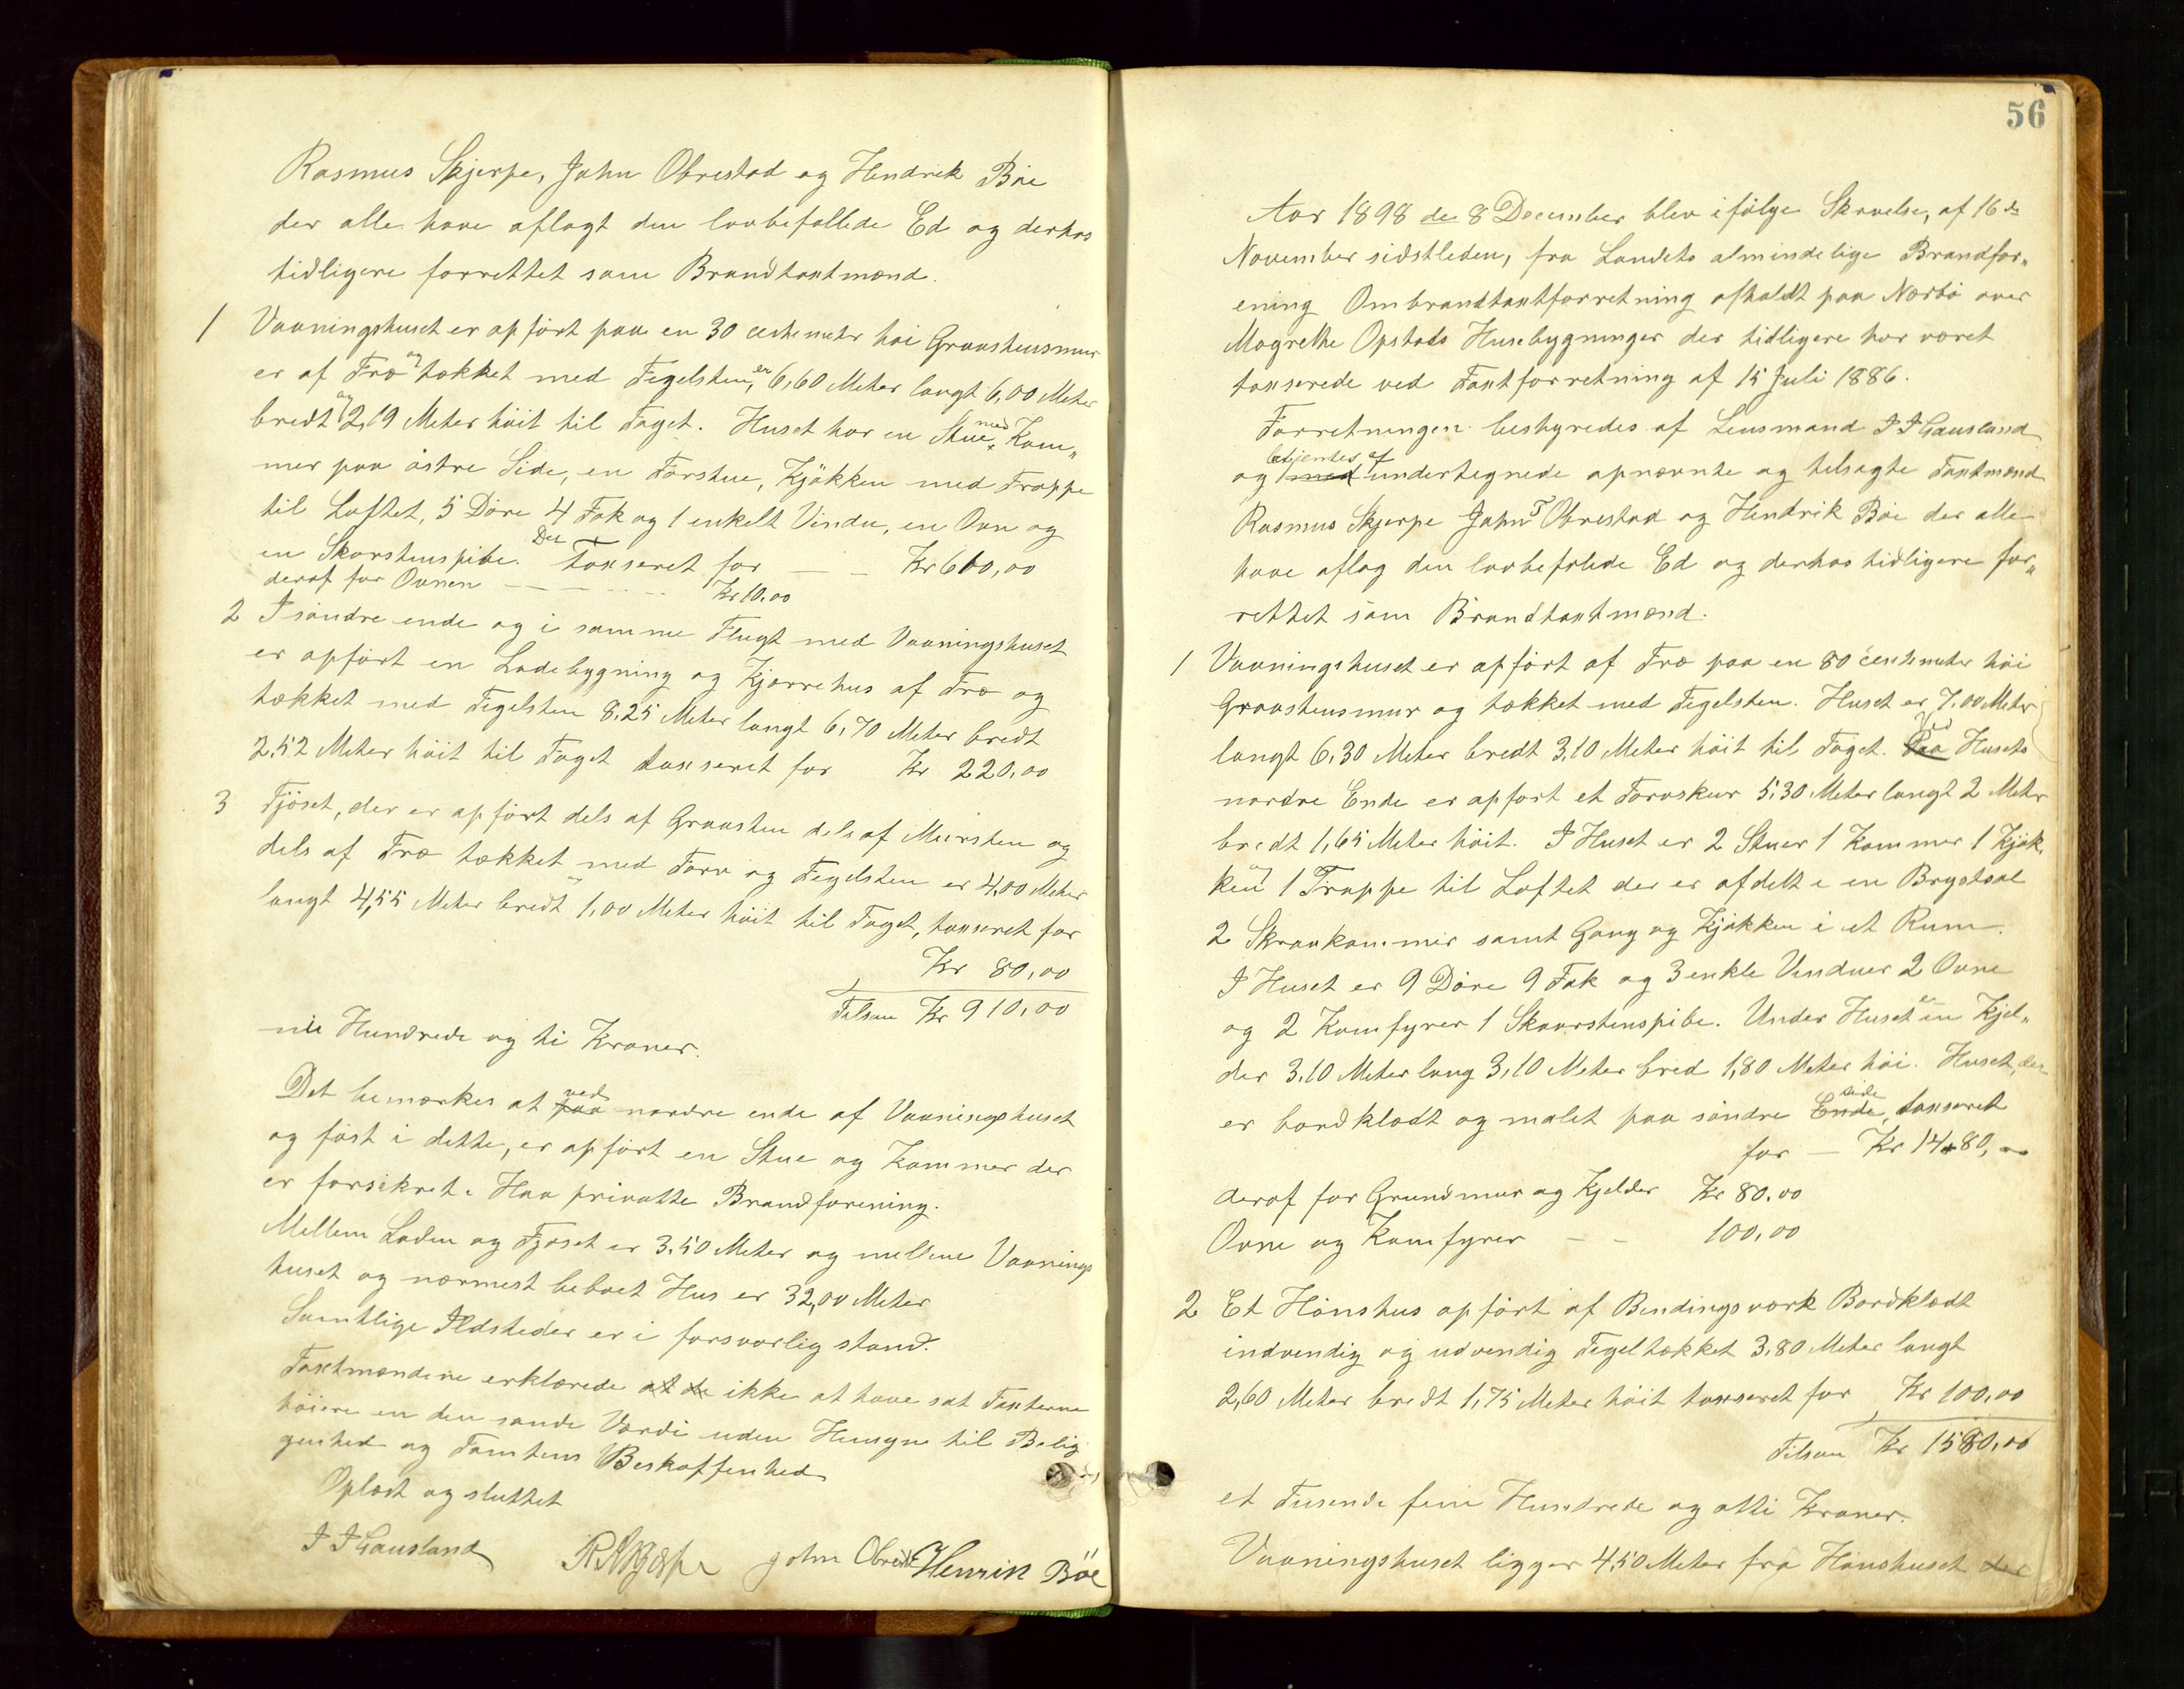 Rasmus Skjerpe, John Obrestad og Hendrik Böe
der alle have aflagt den lovbefallede Ed og derhos
tidligere forrettet som Brandtaxtmænd.
1 Vaaningshuset er opfört paa en 30 centemeter höi Graastensmur
er af Træ og tækket med Tegelsten, er 6,60 Meter langt 6,00 Meter
bredt og 2,19 Meter höit til Taget. Huset har en Stue med Kam„
mer paa östre Side, en Forstue, Kjökken med Trappe
til Loftet, 5 Döre 4 Fak og 1 enkelt Vindu, en Ovn og
en Skorstenspibe. Taxseret for — — Kr 610,00
deraf for Ovnen — — — Kr 10.00
2 I söndre ende og i samme Flugt med Vaaningshuset
er opfört en Ladebygning og Kjærrehus af Træ og
tækket med Tegelsten 8,25 Meter langt 6,70 Meter bredt
2,52 Meter höit til Taget taxseret for Kr 220,00
3 Fjöset, der er opfört dels af Graasten dels af Mursten og
dels af Træ tækket med Torv og Tegelsten er 4,00 Meter
langt 4,55 Meter bredt 1,00 Meter höit til Taget, taxseret for
Kr 80,00
Tilsam Kr 910,00
ni Hundrede og ti Kroner.
Det bemærkes at paa ved nordre ende af Vaaningshuset
og fast i dette, er opfört en Stue og Kammer der
er forsikret i Haa privatte Brandforening.
Mellem Laden og Fjöset er 3,50 Meter og mellem Vaanings
huset og nærmest beboet Hus er 32,00 Meter
Samtlige Ildsteder er i forsvarlig stand.
Taxtmændene erklærede at de ikke at have sat Taxterne
höiere en den sande Værdi uden Hensyn til Belig
genhed og Tomtens Beskaffenhed
Oplæst og sluttet
I I Gausland RSkjerpe John Obrestad Henrik Böe
56
Aar 1898 den 8 December blev ifölge Skrvelse, af 16de
November sidstleden, fra Landets almindelige Brandfor„
ening Ombrandtaxtforretning afholdt paa Nærbö over
Magrethe Opstads Husebygninger der tidligere har været
taxserede ved Taxtforretning af 15 Juli 1886.
Forretningen bestyredes af Lensmand I I Gausland
og med betjentes af undertegnede opnævnte og tilsagte Taxtmænd
Rasmus Skjerpe John T Obrestad og Hendrik Böe der alle
have aflag den lovbefalede Ed og derhos tidligere for„
rettet som Brandtaxtmænd.
1 Vaaningshuset er opfört af Træ paa en 80 centemeter höi
Graastensmur og tækket med Tegelsten. Huset er 7,00 Meter
langt 6,30 Meter bredt 3,10 Meter höit til Taget. Paa Ved Husets
nordre Ende er opfört et Torvskur 5,30 Meter langt 2 Meter
bredt 1,65 Meter höit. I Huset er 2 Stuer 1 Kammer 1 Kjök„
ken og 1 Trappe til Loftet der er afdelt i en Brystsal
2 Skraakammer samt Gang og Kjökken i et Rum.
I Huset er 9 Döre 9 Fak og 3 enkle Vinduer 2 Ovne
og 2 Komfyrer 1 Skaarstenspibe. Under Huset er en Kjel„
der 3,10 Meter lang 3,10 Meter bred 1,80 Meter höi. Huset, der
er bordklædt og malet paa söndre Ende side, taxseret
for — Kr 1480,00
deraf for Grundmur og Kjelder Kr 80,00
Ovne og Komfyrer — — 100,00
2 Et Hönshus opfört af Bindingsværk Bordklædt
indvendig og udvendig Tegeltækket 3,80 Meter langt
2,60 Meter bredt 1,75 Meter höit taxseret for Kr 100,00
Tilsam Kr 1580,00
et Tusende fem Hundrede og otti Kroner.
Vaaningshuset ligger 4,50 Meter fra Hönshuset der